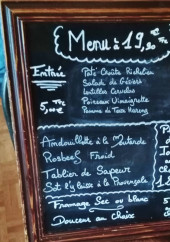 Menu à 19,90 € TTC
Entrée
5,00 € TTC
Paté Croûte Richelieu
Salade de Gésiers
Lentilles Cervelas
Poireaux Vinaigrette
Pomme di Terre Hareng
Andouillette à la Moutarde
Rosbeef Froid
Tablier de Sapeur
St l'Jause à la Provençale
Fromage Sec ou blanc
Douceur au choix